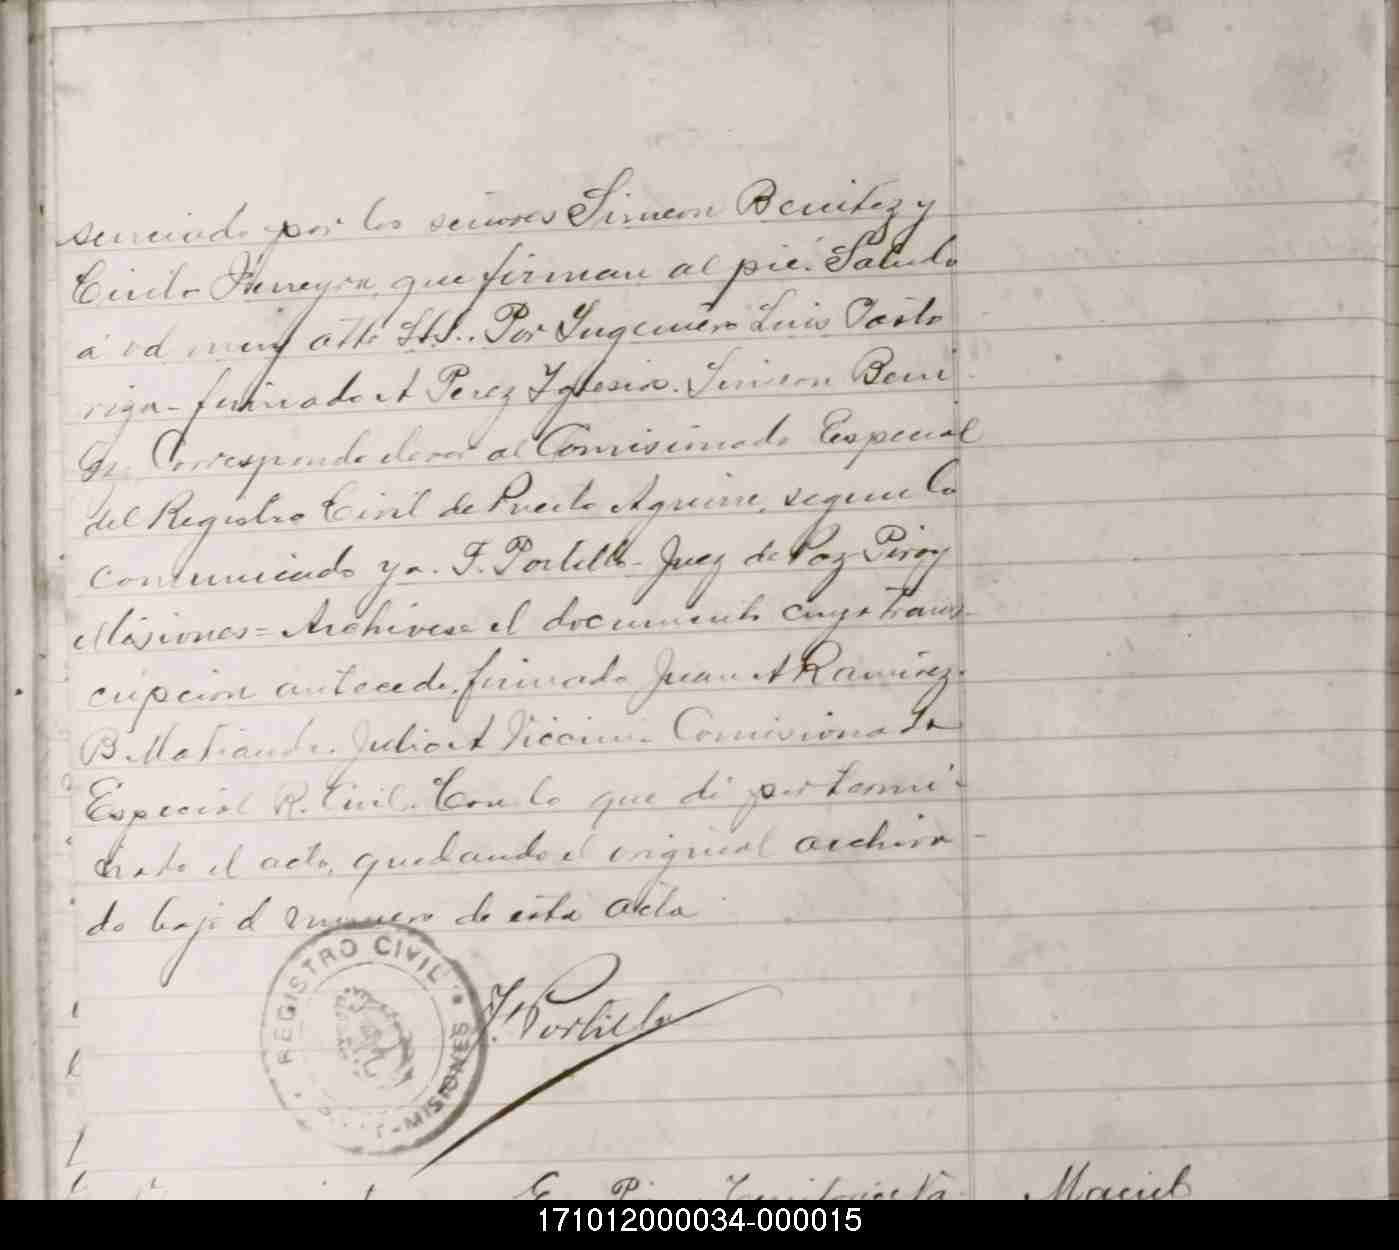 senciado por los señores Simeon Benitez y
Cirilo Ferreyra, que firman al pié. Saluda
á Vd muy atte S.S.S. Por Ingeniero Luis
riza - firmado A Perez Iglesia. Simeon Beni
Corresponde elevar al Comisionado Especial
del Registro Civil de Puerto Aguirre, segun lo
comunicado ya. F. Portillo - Juez de Paz Piray
Misiones = Archivese el documento cuya trans-
cripcion antecede, firmado Juan A Ramirez.
B. Julio A Comisionado
Especial R. Civil. Con lo que dí por termi-
nado el acto, quedando el original archiva-
do bajo el numero de esta acta
F. Portillo
REGISTRO CIVIL
MISIONES
En Territorio
Maciel
171012000034-000015